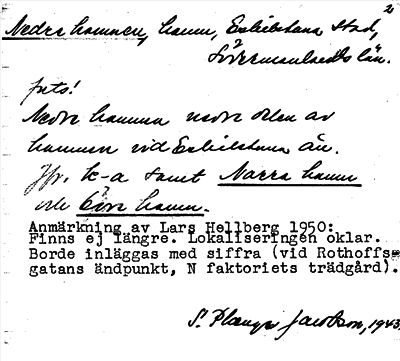 2
Nedra hamnen, hamn, Eskilstuna stad,
Södermanlands län.
Nedre hamnen nedre delen av
hamnen vid Eskilstuna ån.
Jfr. k-a samt Norra hamn
och Övre hamn.
Anmärkning av Lars Hellberg 1950:
Finns ej längre. Lokaliseringen oklar.
Borde inläggas med siffra (vid Rothoffs-
gatans ändpunkt, N faktoriets trädgård).
Jacobson, 1943.